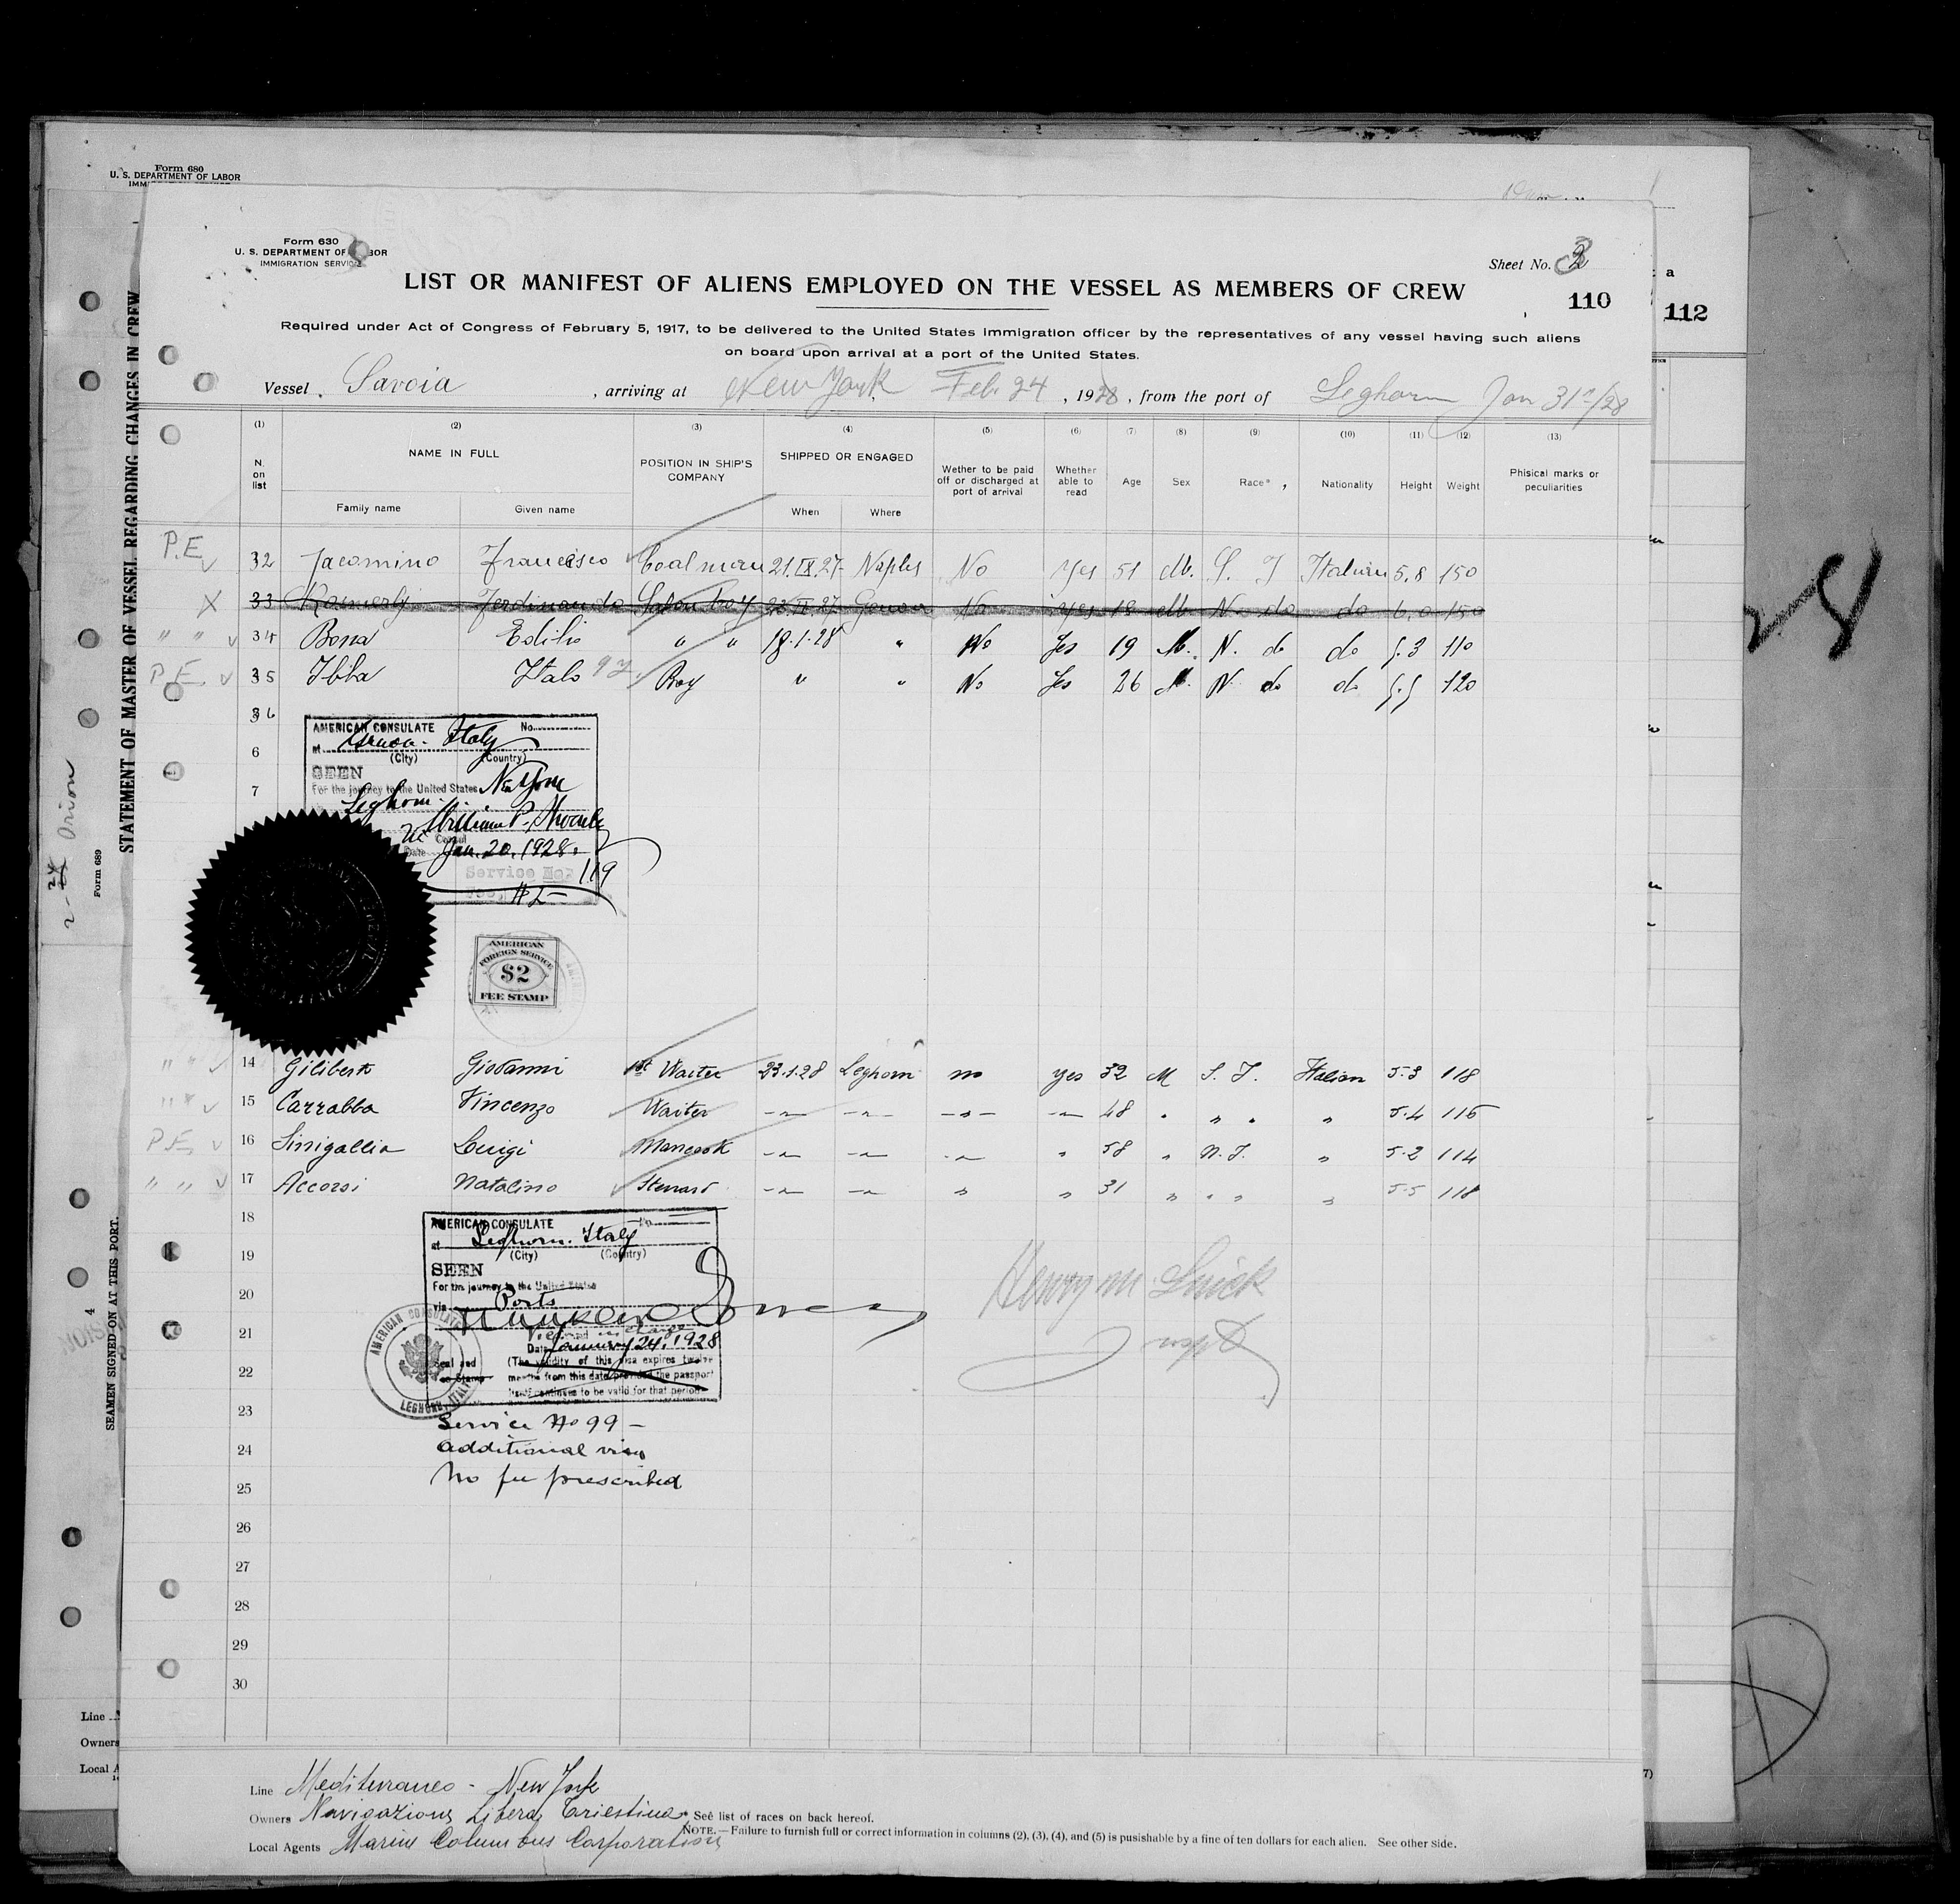 Form 680
U. S. DEPARTMENT OF LABOR
Form 630
U. S. DEPARTMENT OF LABOR
IMMIGRATION SERVICE
Sheet No. 3
LIST OR MANIFEST OF ALIENS EMPLOYED ON THE VESSEL AS MEMBERS OF CREW
110
112
Required under Act of Congress of February 5, 1917, to be delivered to the United States immigration officer by the representatives of any vessel having such aliens
on board upon arrival at a port of the United States.
Vessel Savoia, arriving at New York Feb. 24, 1928, from the port of Leghorn Jan 31st/28
(1) (2) (3) (4) (5) (6) (7) (8) (9) (10) (11) (12) (13)
N. on list NAME IN FULL POSITION IN SHIP'S COMPANY SHIPPED OR ENGAGED Wether to be paid off or discharged at port of arrival Whether able to read Age Sex Race* , Nationality Height Weight Phisical marks or peculiarities
Family name Given name When Where
P.E 32 Jacomino Francisco Coalman 21.IX.27 Naples No Yes 51 M. S. I Italian 5.8 150
X 33 Ferdinando Salon boy Genova No Yes 18 M N. do do 6.0 150
" " 34 Bossa Edilio " " 18.1.28 " No Yes 19 M. N. do do 5.3 110
P.E. 35 Ibba Italo Boy " " No Yes 26 M. N do do 5.5 120
36
AMERICAN CONSULATE No.
at Genoa. Italy
(City) (Country)
6
SEEN
For the journey to the United States
7
Leghorn
William P.
Consul
Date Jan. 20, 1928.
Service No. 119
AMERICAN
FOREIGN SERVICE
$2
FEE STAMP
" " 14 Giliberti Giovanni 1st Waiter 23.1.28 Leghorn no yes 32 M S. I. Italian 5.3 118
" " 15 Carrabba Vincenzo Waiter 48 " " " " 5.4 116
P.E. 16 Sinigallia Luigi Mancook " 58 " N.I. " 5.2 114
" " 17 Accorsi Natalino Steward " " 31 " " " " 5.5 118
18
AMERICAN CONSULATE No.
at Leghorn. Italy
(City) (Country)
19
SEEN
For the journey to the United States
20
via Ports
21
Date January 24, 1928
Seal and (The validity of this visa expires twelve
22
on Stamp months from this date provided the passport
itself continues to be valid for that period
AMERICAN CONSULATE
LEGHORN, ITALY
23
Service No 99 -
24
additional visa
25
No fee prescribed
Henry M.
26
27
28
29
30
Line Mediterraneo - New York
Owners Navigazione Libera Triestina
* See list of races on back hereof.
NOTE.—Failure to furnish full or correct information in columns (2), (3), (4), and (5) is pusishable by a fine of ten dollars for each alien. See other side.
Local Agents Marine Columbus Corporation
STATEMENT OF MASTER OF VESSEL REGARDING CHANGES IN CREW
Orion
Form 689
SEAMEN SIGNED ON AT THIS PORT.
4
Line
Owners
Local A